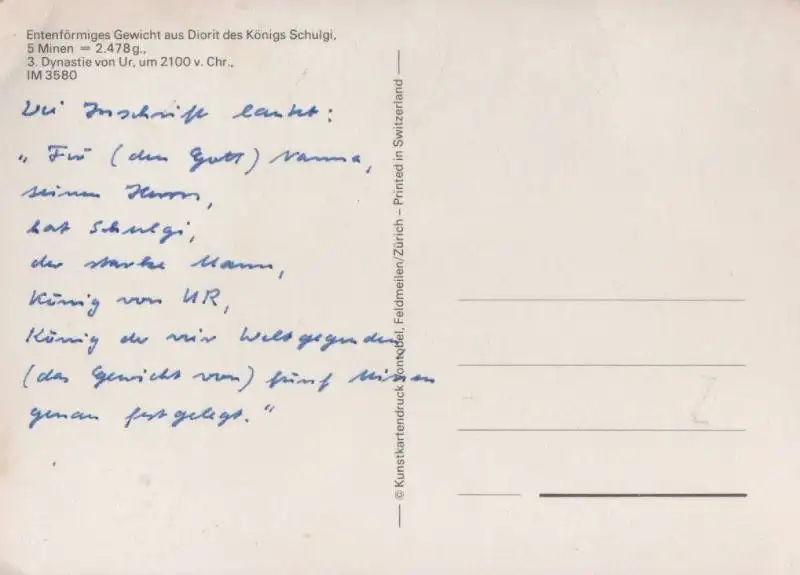 Entenförmiges Gewicht aus Diorit des Königs Schulgi,
5 Minen = 2.478 g.,
3. Dynastie von Ur, um 2100 v. Chr.,
IM 3580
Die Inschrift lautet:
„Für (den Gott) Nanna,
seinen Herrn,
hat Schulgi,
der starke Mann,
König von UR,
König der vier Weltgegenden
(das Gewicht von) fünf Minen
genau festgelegt."
© Kunstkartendruck Vontobel, Feldmeilen/Zürich – Printed in Switzerland